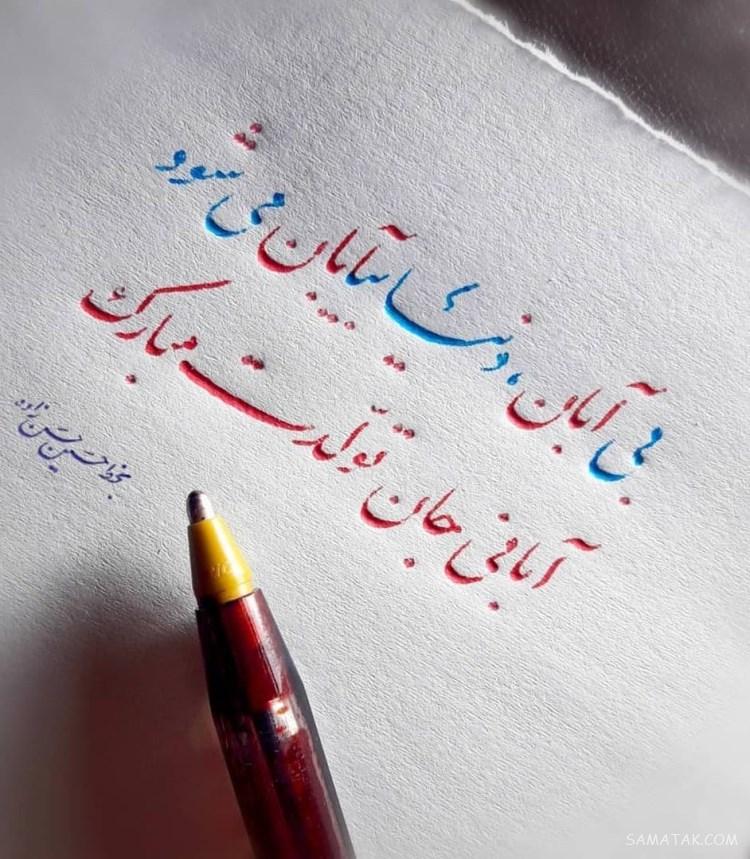 بی آبان، دنیا بیآبان می شود
آبانی جان تولّدت مبارک
بخط حسین حسن زاده
SAMATAK.COM